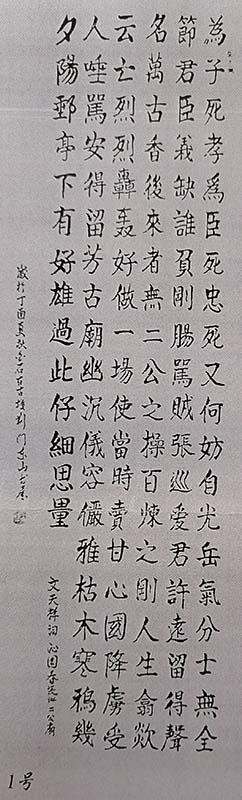 為子死孝爲臣死忠死又何妨自光岳氣分士無全
節君臣義缺誰負剛腸罵賊張巡愛君許遠留得聲
名萬古香後來者無二公之操百煉之剛人生翕欻
云亡烈烈轟轟好做一場使當時賣甘心國降虜受
人唾罵安得留芳古廟幽沉儀容儼雅枯木寒鴉幾
夕陽郵亭下有好雄過此仔細思量
文天祥词沁園春二公廟
歲於丁酉夏秋
1号